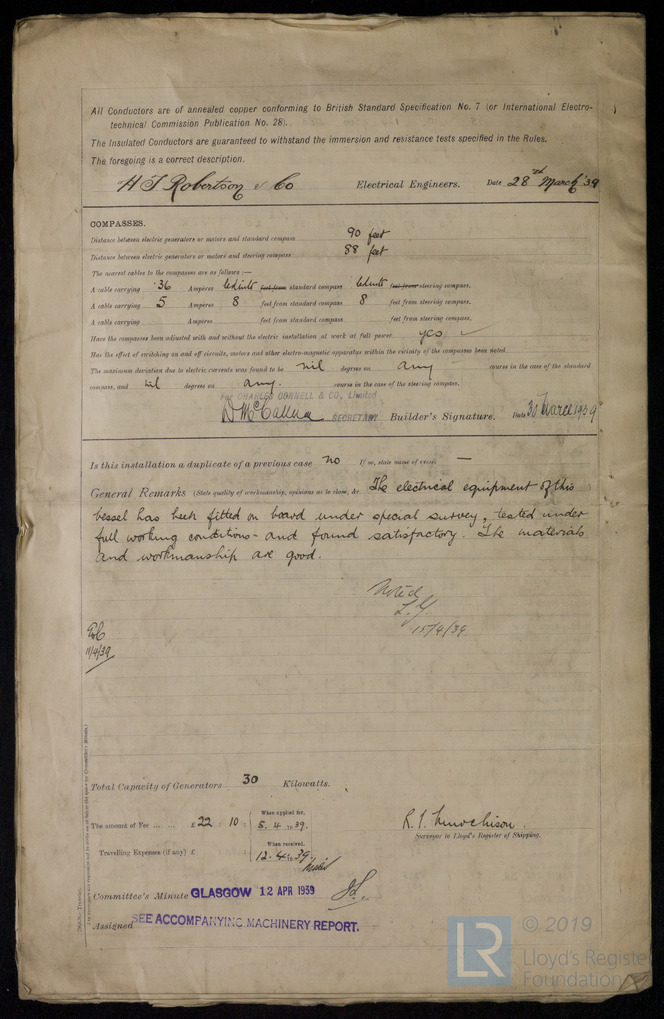 All Conductors are of annealed copper conforming to British Standard Specification No. 7 (or International Electro-
technical Commission Publication No. 28).
The Insulated Conductors are guaranteed to withstand the immersion and resistance tests specified in the Rules.
The foregoing is a correct description.
H T Robertson & Co Electrical Engineers. Date 28th March '39
COMPASSES.
Distance between electric generators or motors and standard compass 90 feet
Distance between electric generators or motors and steering compass 88 feet
The nearest cables to the compasses are as follows:—
A cable carrying .36 Ampères led into feet from standard compass led into feet from steering compass.
A cable carrying 5 Ampères 8 feet from standard compass 8 feet from steering compass.
A cable carrying Ampères feet from standard compass feet from steering compass.
Have the compasses been adjusted with and without the electric installation at work at full power yes
Has the effect of switching on and off circuits, motors and other electro-magnetic apparatus within the vicinity of the compasses been noted
The maximum deviation due to electric currents was found to be nil degrees on any course in the case of the standard
compass, and nil degrees on any. course in the case of the steering compass.
For CHARLES CONNELL & CO., Limited
D McCallum SECRETARY Builder's Signature. Date 30 March 1939
Is this installation a duplicate of a previous case no If so, state name of vessel —
General Remarks (State quality of workmanship, opinions as to &c. The electrical equipment of this
vessel has been fitted on board under special survey, tested under
full working conditions - and found satisfactory. The materials
and workmanship are good.
Noted
L.Y.
15/4/39
11/4/39
Total Capacity of Generators 30 Kilowatts.
The amount of Fee ... ... £ 22 : 10 : When applied for, 5. 4. 1939.
Travelling Expenses (if any) £ : : When received, 12. 4. 1939
R. J. Murchison.
Surveyor to Lloyd's Register of Shipping.
Committee's Minute GLASGOW 12 APR 1939
Assigned SEE ACCOMPANYING MACHINERY REPORT.
LR © 2019
Lloyd's Register
Foundation